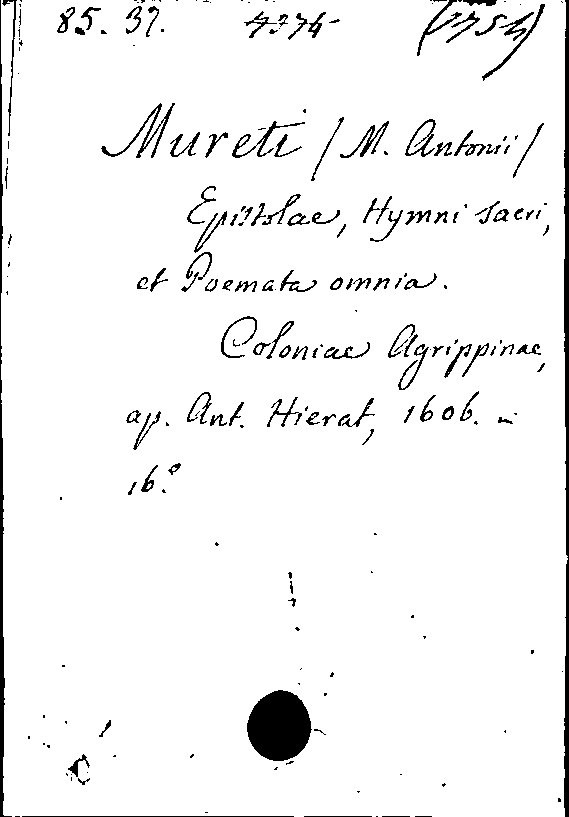 85. 37.
Mureti / M. Antonii /
Epistolae, Hymni sacri,
et Poemata omnia.
Coloniae Agrippinae,
ap. Ant. Hierat, 1606. in
16.°